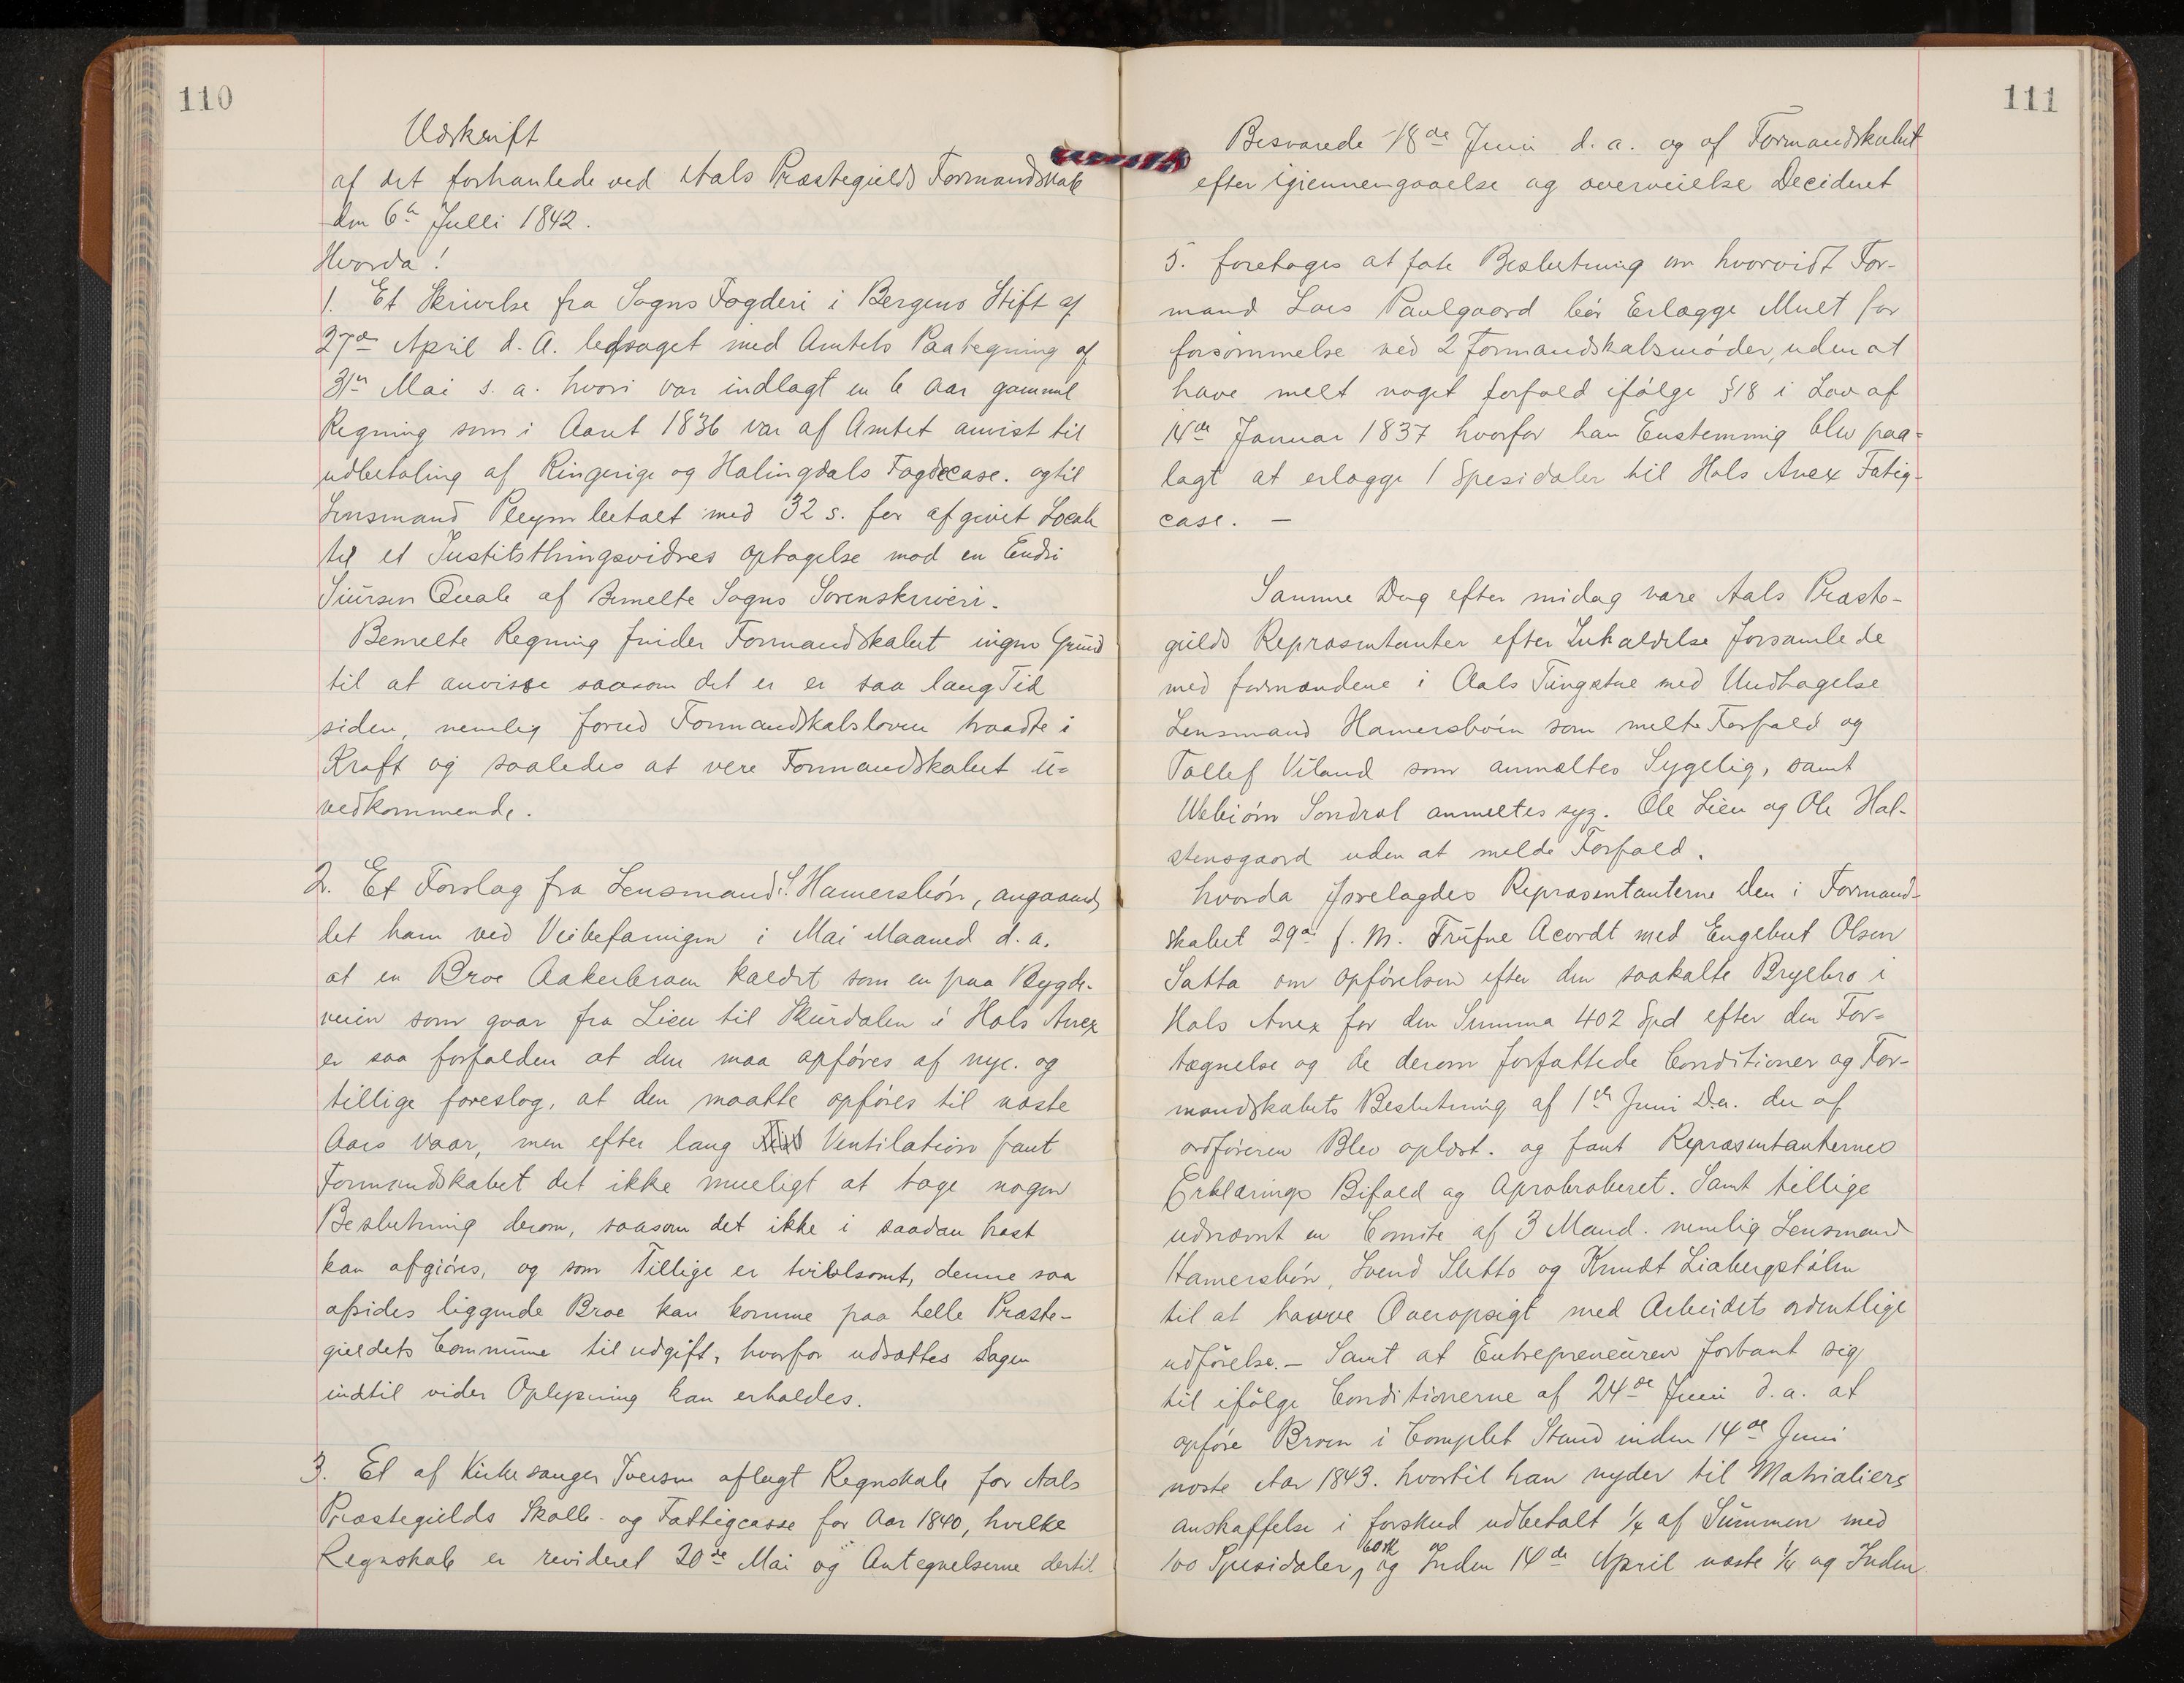 110
Udskrift
af det forhanlede ved Aals Præstegields Formandskab
den 6te Julli 1842.
Hvorda!
1. Et Skrivelse fra Sogns Fogderi i Bergens Stift af
27de April d. A. ledsaget med Amtets Paategning af
31te Mai s. a. hvori var indlagt en 6 Aar gammel
Regning som i Aaret 1836 var af Amtet anvist til
udbetaling af Ringerige og Halingdals Fogdecase. og til
Lensmand Pleym betalt med 32 s. for afgivet Locale
til et Justitsthingsvidnes optagelse mod en Endri
Siürsen Quale af Bemelte Sogns Sorenskriveri.
Bemelte Regning finder Formandskabet ingen Grund
til at anvisse saasom det er er saa lang Tid
siden, nemlig førend Formandskabsloven traadte i
Kraft og saaledes at vere Formandskabet ü=
vedkommende.
2. Et Forslag fra Lensmand S. Hamersbøn, angaaende
det ham ved Veibefaringen i Mai Maaned d. a.
at en Broe Aakerbroen kaldet som en paa Bygde-
veien som gaar fra Lien til Skürdalen i Hols Anex
er saa forfalden at den maa opføres af nye. og
tillige foreslog, at den maatte opføres til næste
Aars Vaar, men efter lang Ventilation fant
Formandskabet det ikke mueligt at tage nogen
Beslutning derom, saasom det ikke i saadan hast
kan afgiøres, og som Tillige er tvivlsomt, denne saa
afsides liggende Broe kan komme paa helle Præste-
gieldets Commüne til udgift, hvorfor udsættes Sagen
indtil vider Oplysning kan erholdes.
3. Et af Kirkesanger Iversen aflagt Regnskab for Aals
Præstegields Skolle- og Fattigcasse for Aar 1840, hvilke
Regnskab er revideret 20de Mai og Antegnelserne dertil
111
Besvarede 18de Juni d. a. og af Formandskabet
efter igiennemgaaelse og overveielse Decideret
5. foretages at fate Beslutning om hvorvidt For-
mand Lars Paulgaard bør Erlægge Mult for
forsømmelse ved 2 Formandskabsmøder, uden at
have melt noget forfald ifølge §18 i Lov af
14de Januar 1837 hvorfor han Enstemmig blev paa=
lagt at erlægge 1 Spesidaler til Hols Anex Fatig-
case. —
Samme Dag efter midag vare Aals Præste-
gields Repræsentanter efter Inkaldelse forsamlede
med formændene i Aals Tingstue med Undtagelse
Lensmand Hamersbøn som melte Forfald og
Tollef Viland som anmæltes Sygelig, samt
Webiørn Sondrol anmeltes syg. Ole Lien og Ole Hal-
stensgaard uden at melde Forfald.
hvorda forelagdes Repræsentanterne den i Formand-
skabet 29de f. M. Trüfne Acordt med Engebret Olsen
Satta om opførelsen efter den saakalte Bryebro i
Hols Anex for den Summa 402 Spd efter den For=
tægnelse og de derom forfattede Conditioner og For-
mandskabets Beslutning af 1te Juni D.a. der af
ordføreren Blev oplæst. og fant Repræsentanternes
Erklærings Bifald og Aprobroberet. Samt tillige
udnævnt en Comite af 3 Mand. nemlig Lensmand
Hamersbøn, Svend Sletto og Knudt Liabergstølen
til at havve Overopsigt med Arbeidets ordentlige
udførelse. — Samt at Entrepreneüren forbant sig
til ifølge Conditionerne af 24de Juni d. a. at
opføre Broen i Complet Stand inden 14de Juni
næste Aar 1843. hvortil han nyder til Matrialiers
anskaffelse i forskud udbetalt ¼ af Summen med
100 Spesidaler, og Inden 14de April næste ¼ og Inden